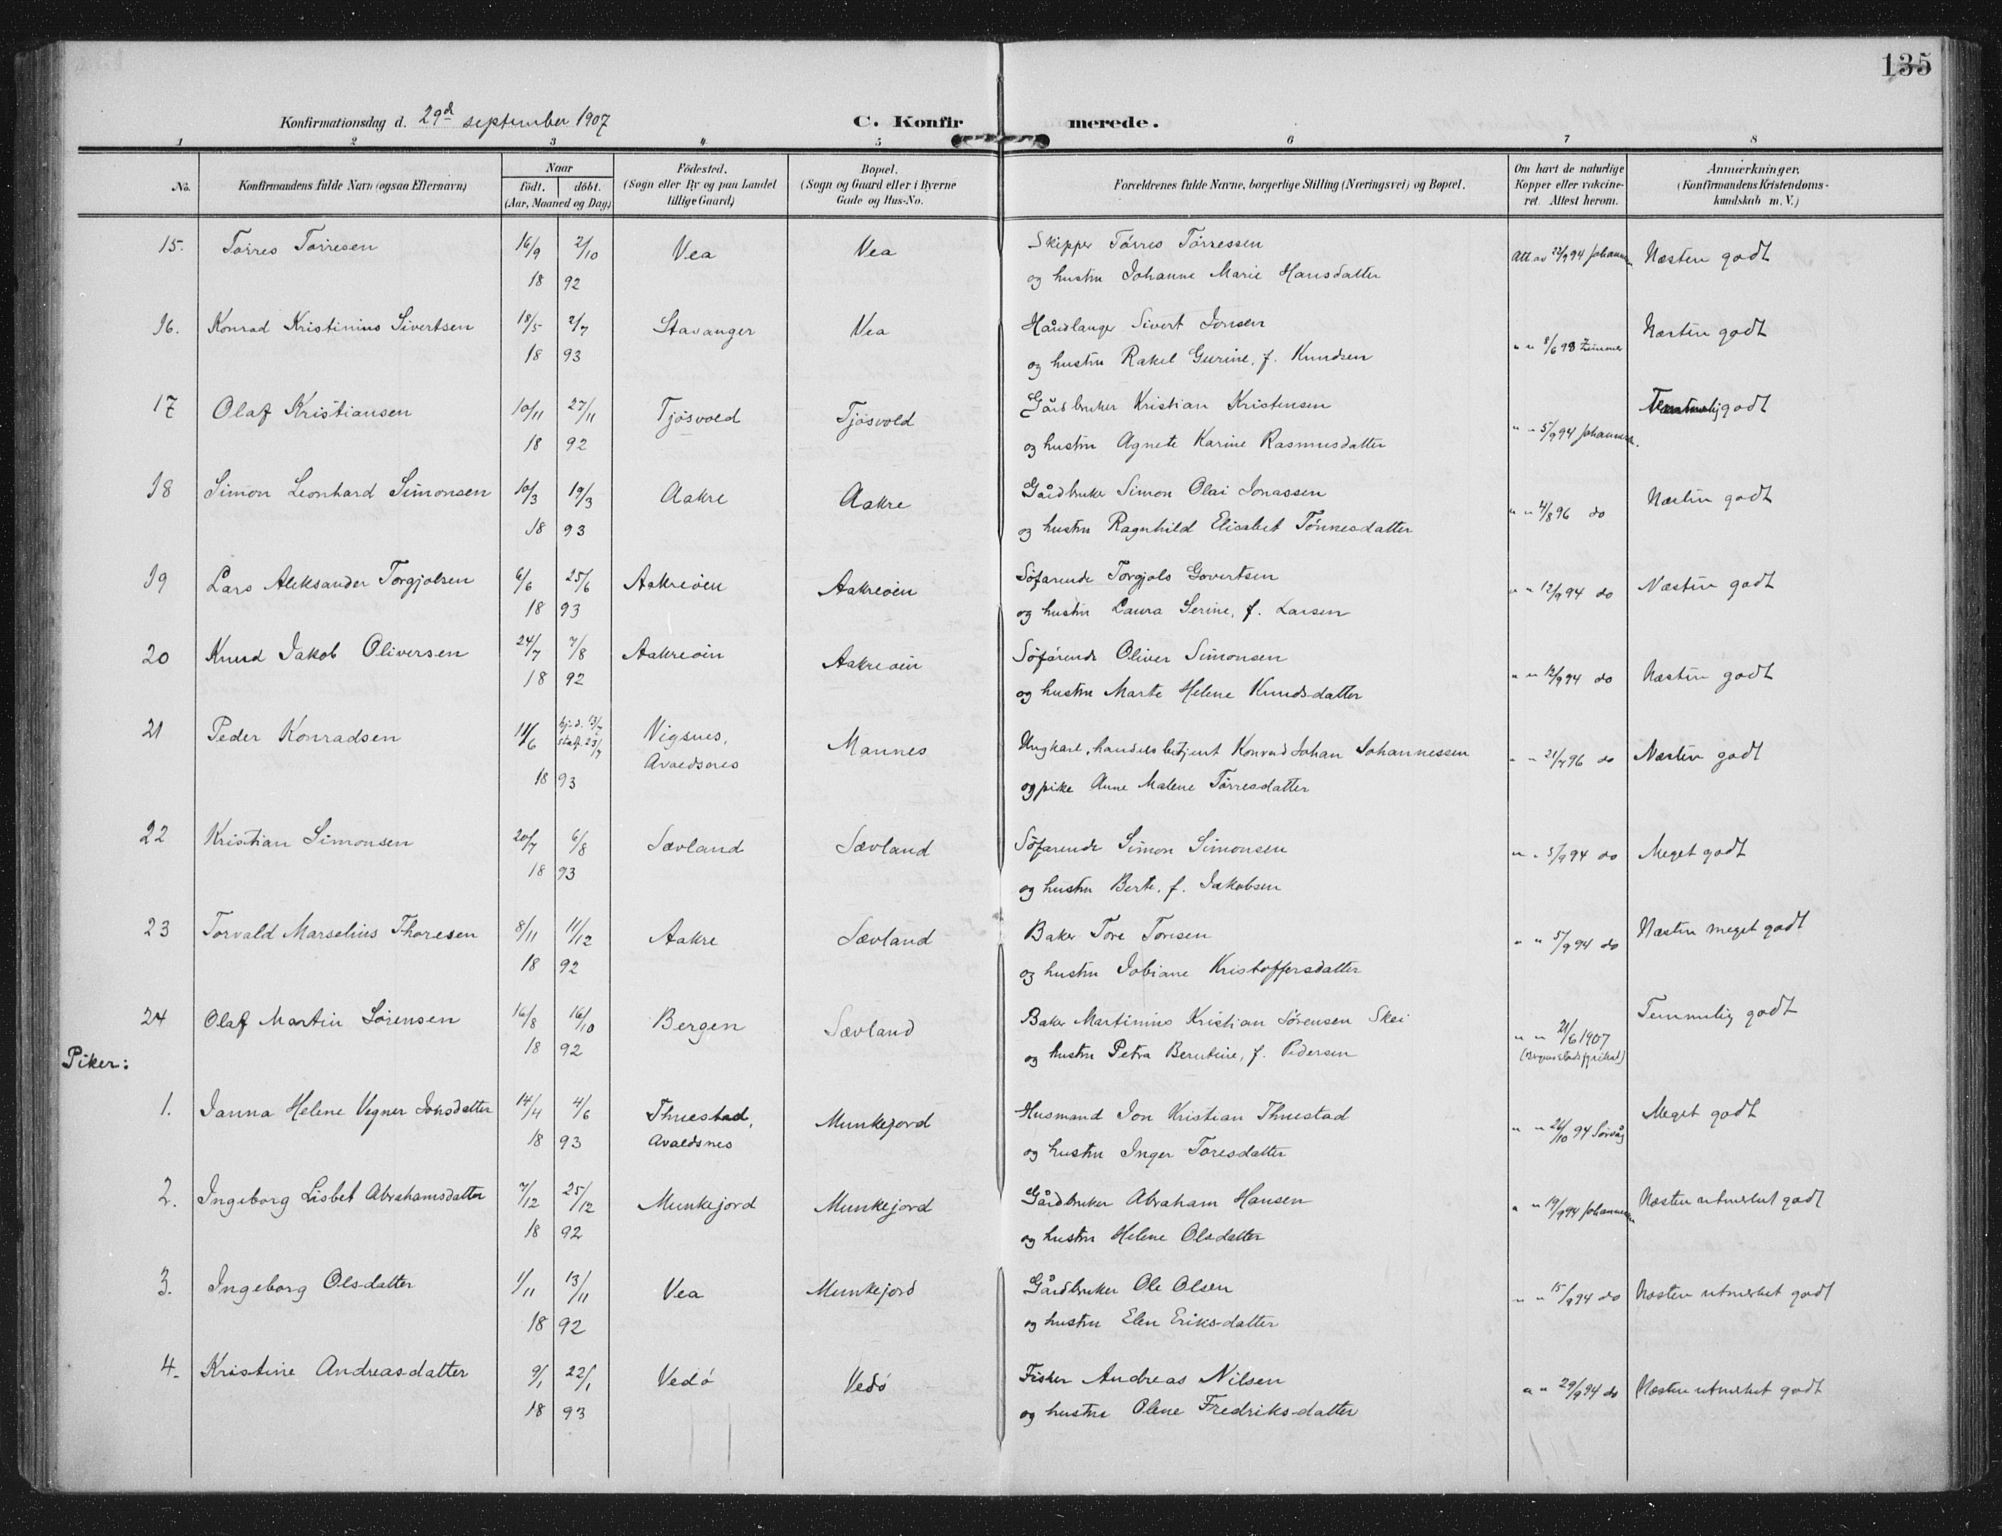 135
Konfirmationsdag d. 29d september 1907 C. Konfirmerede.
1 2 3 4 5 6 7 8
No. Konfirmandens fulde Navn (ogsaa Efternavn) Naar født. døbt. (Aar, Maaned og Dag) Födested. (Sogn eller By og paa Landet tillige Gaard) Bopæl. (Sogn og Gaard eller i Byerne Gade og Hus-No. Forældrenes fulde Navne, borgerlige Stilling (Næringsvei) og Bopæl. Om havt de naturlige Kopper eller vakcineret. Attest herom. Anmærkninger. (Konfirmandens Kristendomskundskab m. V.)
15. Tørres Tørresen 16/9 2/10 Vea Vea Skipper Tørres Tørressen Att. av 22/9 94 Johannesen Næsten godt
18 92 og hustru Johanne Marie Hansdatter
16. Konrad Kristinius Sivertsen 18/5 2/7 Stavanger Vea Håndlanger Sivert Jonsen Næsten godt
18 93 og hustru Rakel Gurine, f. Knudsen " " 8/6 93 Zimmer
17 Olaf Kristiansen 10/11 27/11 Tjøsvold Tjøsvold Gårdbruker Kristian Kristensen Temmelig godt
18 92 og hustru Agnete Karine Rasmusdatter " " 5/9 94 Johannesen.
18 Simon Leonhard Simonsen 10/3 19/3 Aakre Aakre Gårdbruker Simon Olai Jonassen Næsten godt
18 93 og hustru Ragnhild Elisabet Tønnesdatter " " 4/8 96 do
19 Lars Aleksander Torgjolsen 6/6 25/6 Aakreøen Aakreøen Søfarende Torgjols Govertsen " " 12/9 94 do Næsten godt
18 93 og hustru Laura Serine, f. Larsen
20 Knud Jakob Oliversen 24/7 7/8 Aakreøen Aakreøen Søfarende Oliver Simonsen " " 12/9 94 do Næsten godt
18 92 og hustru Marte Helene Knudsdatter
21 Peder Konradsen 11/6 hj.d. 13/7 staf. 23/7 Vigsnes, Mannes Ungkarl, handelsbetjent Konrad Johan Johannessen " " 21/4 96 do Næsten godt
18 93 Avaldsnes og pike Anne Malene Tørresdatter
22 Kristian Simonsen 20/7 6/8 Sævland Sævland Søfarende Simon Simonsen " " 5/9 94 do Meget godt
18 93 og hustru Berte, f. Jakobsen
23 Torvald Marselius Thoresen 8/11 11/12 Aakre Sævland Baker Tore Toresen " " 5/9 94 do Næsten meget godt
18 92 og hustru Tobiane Kristoffersdatter
24 Olaf Martin Sørensen 16/8 16/10 Bergen Sævland Baker Martinius Kristian Sørensen Skei " " 21/6 1907 Temmelig godt
18 92 og hustru Petra Berntine, f. Pedersen
Piker:
1. Janna Helene Vegner Jonsdatter 14/4 4/6 Thuestad, Munkejord Husmand Jon Kristian Thuestad " " 26/10 94 Sørvåg Meget godt
18 93 Avaldsnes og hustru Inger Toresdatter
2. Ingeborg Lisbet Abrahamsdatter 7/12 25/12 Munkejord Munkejord Gårdbruker Abraham Hansen " " 19/9 94 Johannesen Næsten utmerket godt
18 92 og hustru Helene Olsdatter
3. Ingeborg Olsdatter 1/11 13/11 Vea Munkejord Gårdbruker Ole Olsen " " 15/9 94 do Næsten utmerket godt
18 92 og hustru Elen Eriksdatter
4. Kristine Andreasdatter 9/1 22/1 Vedø Vedø Fisker Andreas Nilsen " " 29/9 94 do Næsten utmerket godt
18 93 og hustru Olene Fredriksdatter